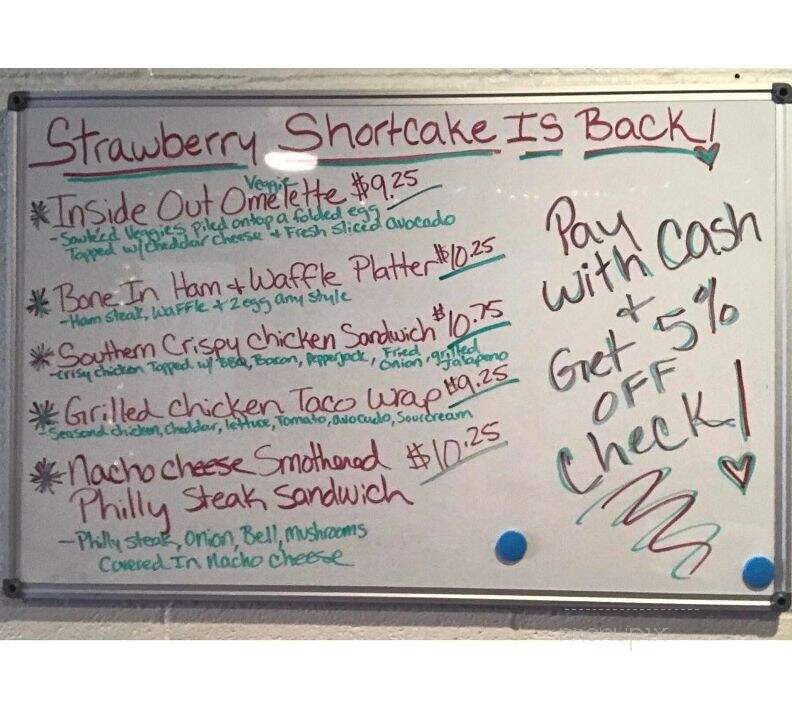 Strawberry Shortcake Is Back!
* Inside Out Veggie Omelette $9.25
- Sauteed Veggies Piled ontop a folded egg
Topped w/cheddar cheese + Fresh sliced avocado
* Bone In Ham + Waffle Platter $10.25
- Ham steak, Waffle + 2 egg any style
* Southern Crispy Chicken Sandwich $10.75
- crisy chicken Topped w/ BBQ, Bacon, Pepperjack, Fried Onion, grilled Jalapeno
* Grilled Chicken Taco Wrap $9.25
- Seasond chicken, cheddar, lettuce, Tomato, avocado, Sourcream
* Nacho cheese Smothered $10.25
Philly Steak Sandwich
- Philly steak, Onion, Bell, Mushrooms
Covered In Nacho cheese
Pay
with Cash
+
Get 5%
OFF
Check!